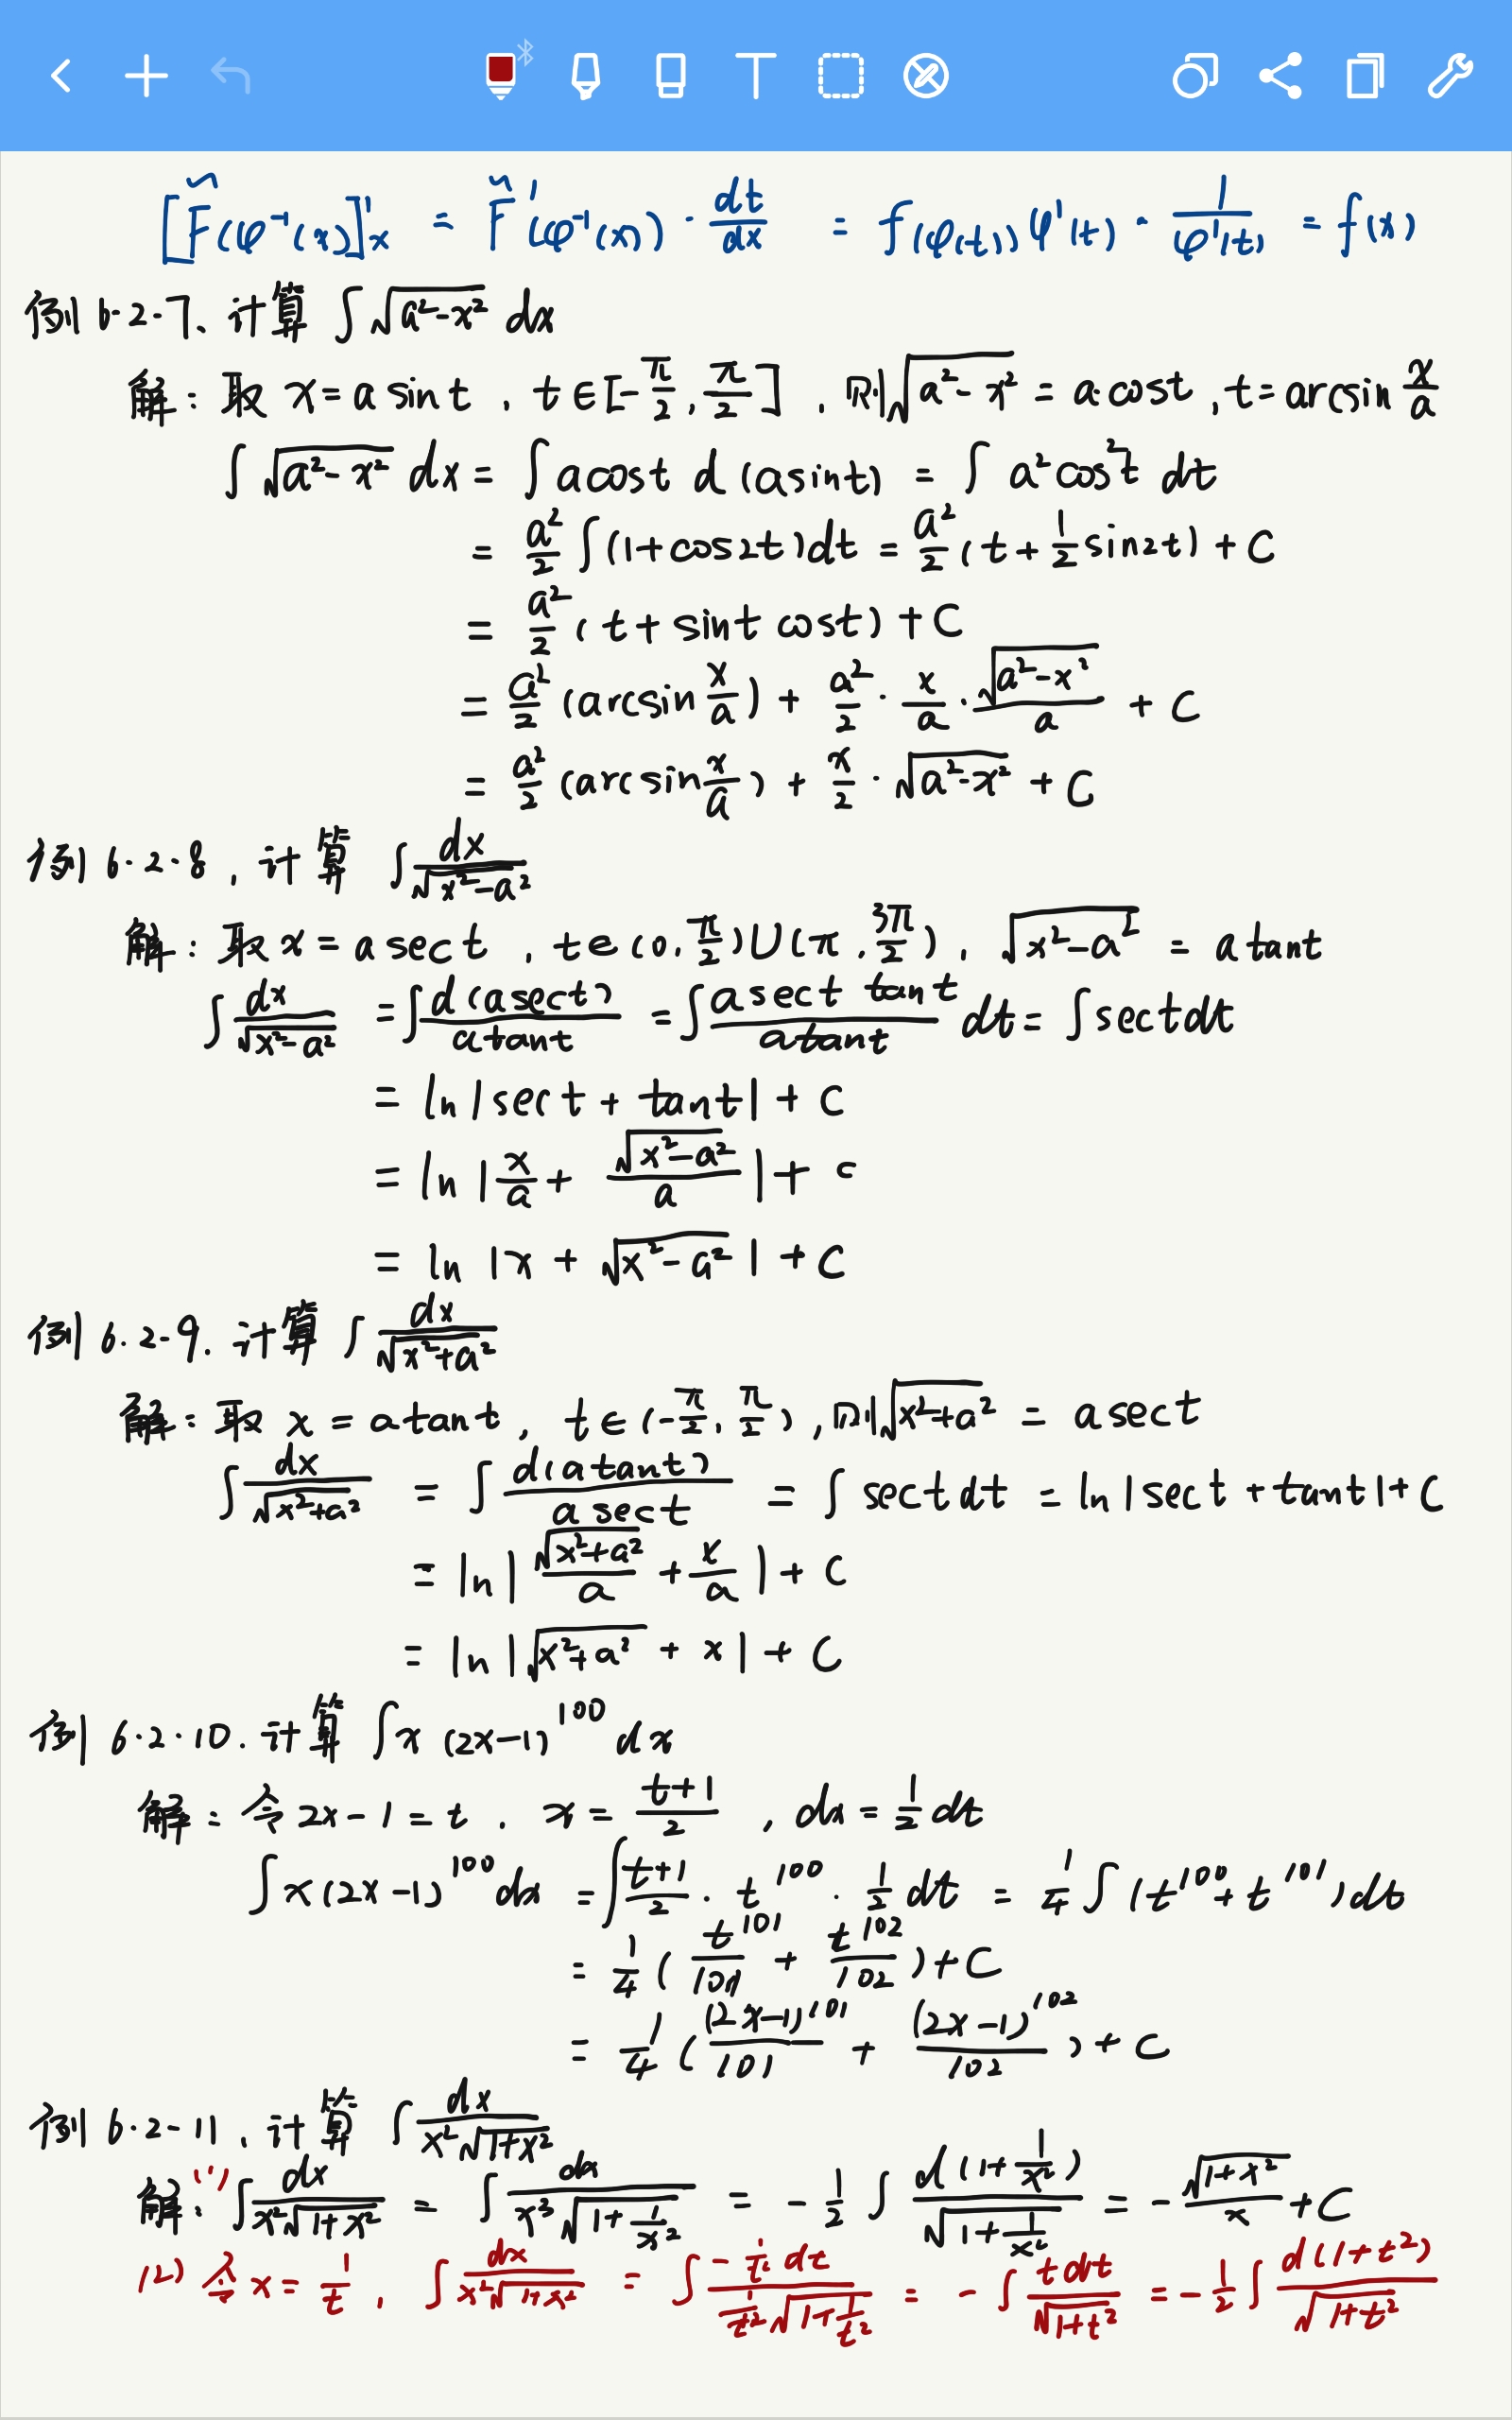 [F̃(φ⁻¹(x))]'ₓ = F̃'(φ⁻¹(x)) · dt/dx = f(φ(t))φ'(t) · 1/φ'(t) = f(x)
例6·2-7、计算 ∫√(a²-x²) dx
解：取 x = a sin t , t∈[-π/2, π/2] , 则√(a²-x²) = a cos t , t = arcsin x/a
∫√(a²-x²) dx = ∫ a cos t d(a sin t) = ∫ a² cos²t dt
= a²/2 ∫(1+cos2t)dt = a²/2 (t + 1/2 sin2t) + C
= a²/2 (t + sin t cos t) + C
= a²/2 (arcsin x/a) + a²/2 · x/a · √(a²-x²)/a + C
= a²/2 (arcsin x/a) + x/2 · √(a²-x²) + C
例6·2·8 , 计算 ∫ dx/√(x²-a²)
解：取 x = a sec t , t∈(0, π/2)∪(π, 3π/2) , √(x²-a²) = a tan t
∫ dx/√(x²-a²) = ∫ d(a sec t)/(a tan t) = ∫ (a sec t tan t)/(a tan t) dt = ∫ sec t dt
= ln|sec t + tan t| + C
= ln|x/a + √(x²-a²)/a| + C
= ln|x + √(x²-a²)| + C
例6·2-9. 计算 ∫ dx/√(x²+a²)
解：取 x = a tan t , t∈(-π/2, π/2) , 则√(x²+a²) = a sec t
∫ dx/√(x²+a²) = ∫ d(a tan t)/(a sec t) = ∫ sec t dt = ln|sec t + tan t| + C
= ln|√(x²+a²)/a + x/a| + C
= ln|√(x²+a²) + x| + C
例6·2·10. 计算 ∫x(2x-1)¹⁰⁰ dx
解：令 2x-1=t . x = (t+1)/2 , dx = 1/2 dt
∫x(2x-1)¹⁰⁰dx = ∫(t+1)/2 · t¹⁰⁰ · 1/2 dt = 1/4 ∫(t¹⁰⁰+t¹⁰¹)dt
= 1/4 (t¹⁰¹/101 + t¹⁰²/102) + C
= 1/4 ((2x-1)¹⁰¹/101 + (2x-1)¹⁰²/102) + C
例6·2-11 , 计算 ∫ dx/(x²√(1+x²))
解：(1) ∫ dx/(x²√(1+x²)) = ∫ dx/(x³√(1+1/x²)) = -1/2 ∫ d(1+1/x²)/√(1+1/x²) = -√(1+x²)/x + C
(2) 令 x = 1/t , ∫ dx/(x²√(1+x²)) = ∫ (-1/t² dt)/(1/t²√(1+1/t²)) = -∫ t dt/√(1+t²) = -1/2 ∫ d(1+t²)/√(1+t²)